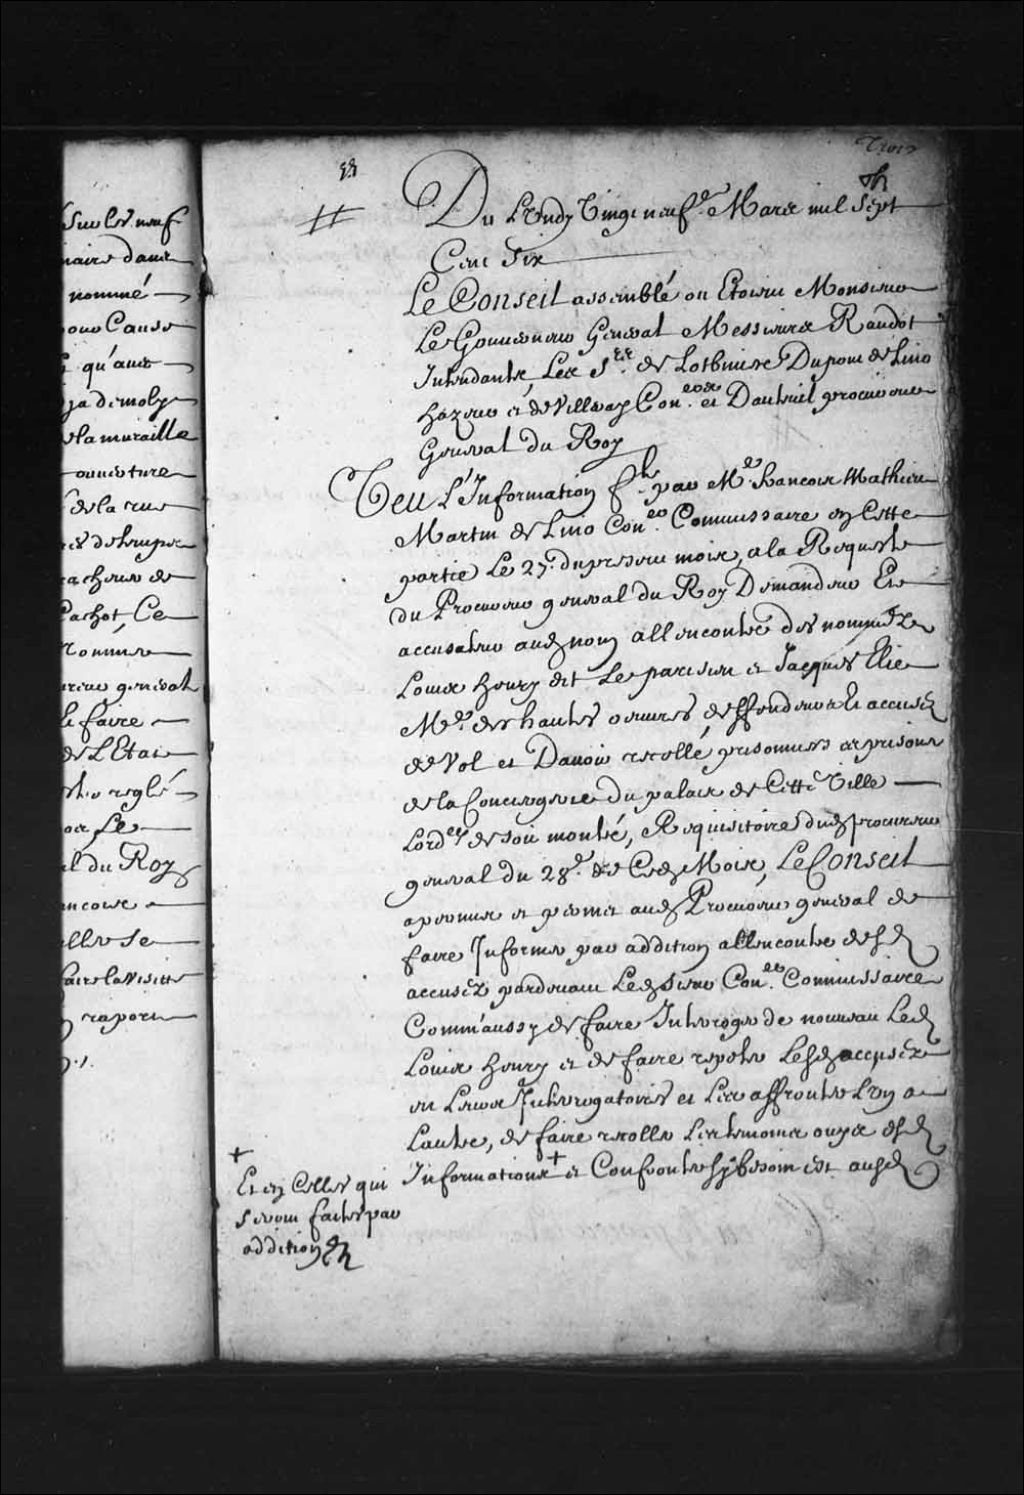 Sur les neuf
naire dans
nommé
pour Cause
qu'avec
ja demoly
de la muraille
ouverture
de la rue
Cachot, Ce
Commre
general
le faire
de L'Etat
reglé
Le
al du Roy
encore
elles se
faire la visitte
raport
Trois
Du Lundy Vingt neuf.e Mars mil Sept
Cent Six
Le Conseil assemblé ou Etoient Monsieur
Le Gouverneur General Messieurs Raudot
Intendants, Les S.rs de Lotbiniere Dupont de Lino
hazeur et de Villeray Con.ers et Dauteuil procureur
General du Roy
Veu L'Information f.te par M.e francois Mathieu
Martin de Lino Con.er Commissaire en Cette
partie Le 27. du present mois, a la Requeste
du Procureur general du Roy Demandeur Et
accusateur aud nom allencontre des nommez
Louis henry dit Le parisien et Jacques Elie
M.e des hautes oeuvres, deffendeurs et accusez
de Vol et Davoir recellé, prisonniers es prisons
de la Conciergerie du palais de Cette Ville
Lord.ce de soit monstré, Requisitoire dud procureur
general du 28.e de Ced Mois, Le Conseil
a permis et permet aud Procureur general de
faire Informer par addition allencontre desd
accusez pardevant Led Sieur Con.er Commissaire
Comm'aussy de faire Interroger de nouveau Led
Louis henry et de faire repeter Lesd accusez
en Leurs Interrogatoires et Les affronter L'un a
Lautre, de faire recoller Les temoins ouys esd
Informations + et Confronter sy besoin est ausd
+
Et en Celles qui
seront faites par
addition